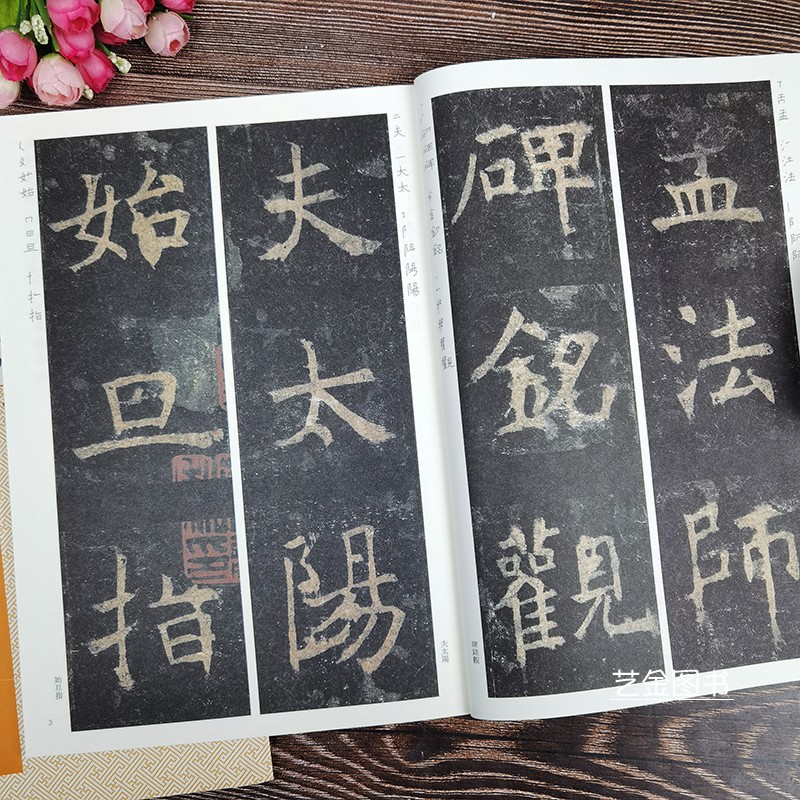 孟法師
碑銘觀
碑銘觀
夫太陽
夫太陽
始旦指
始旦指
3
艺金图书